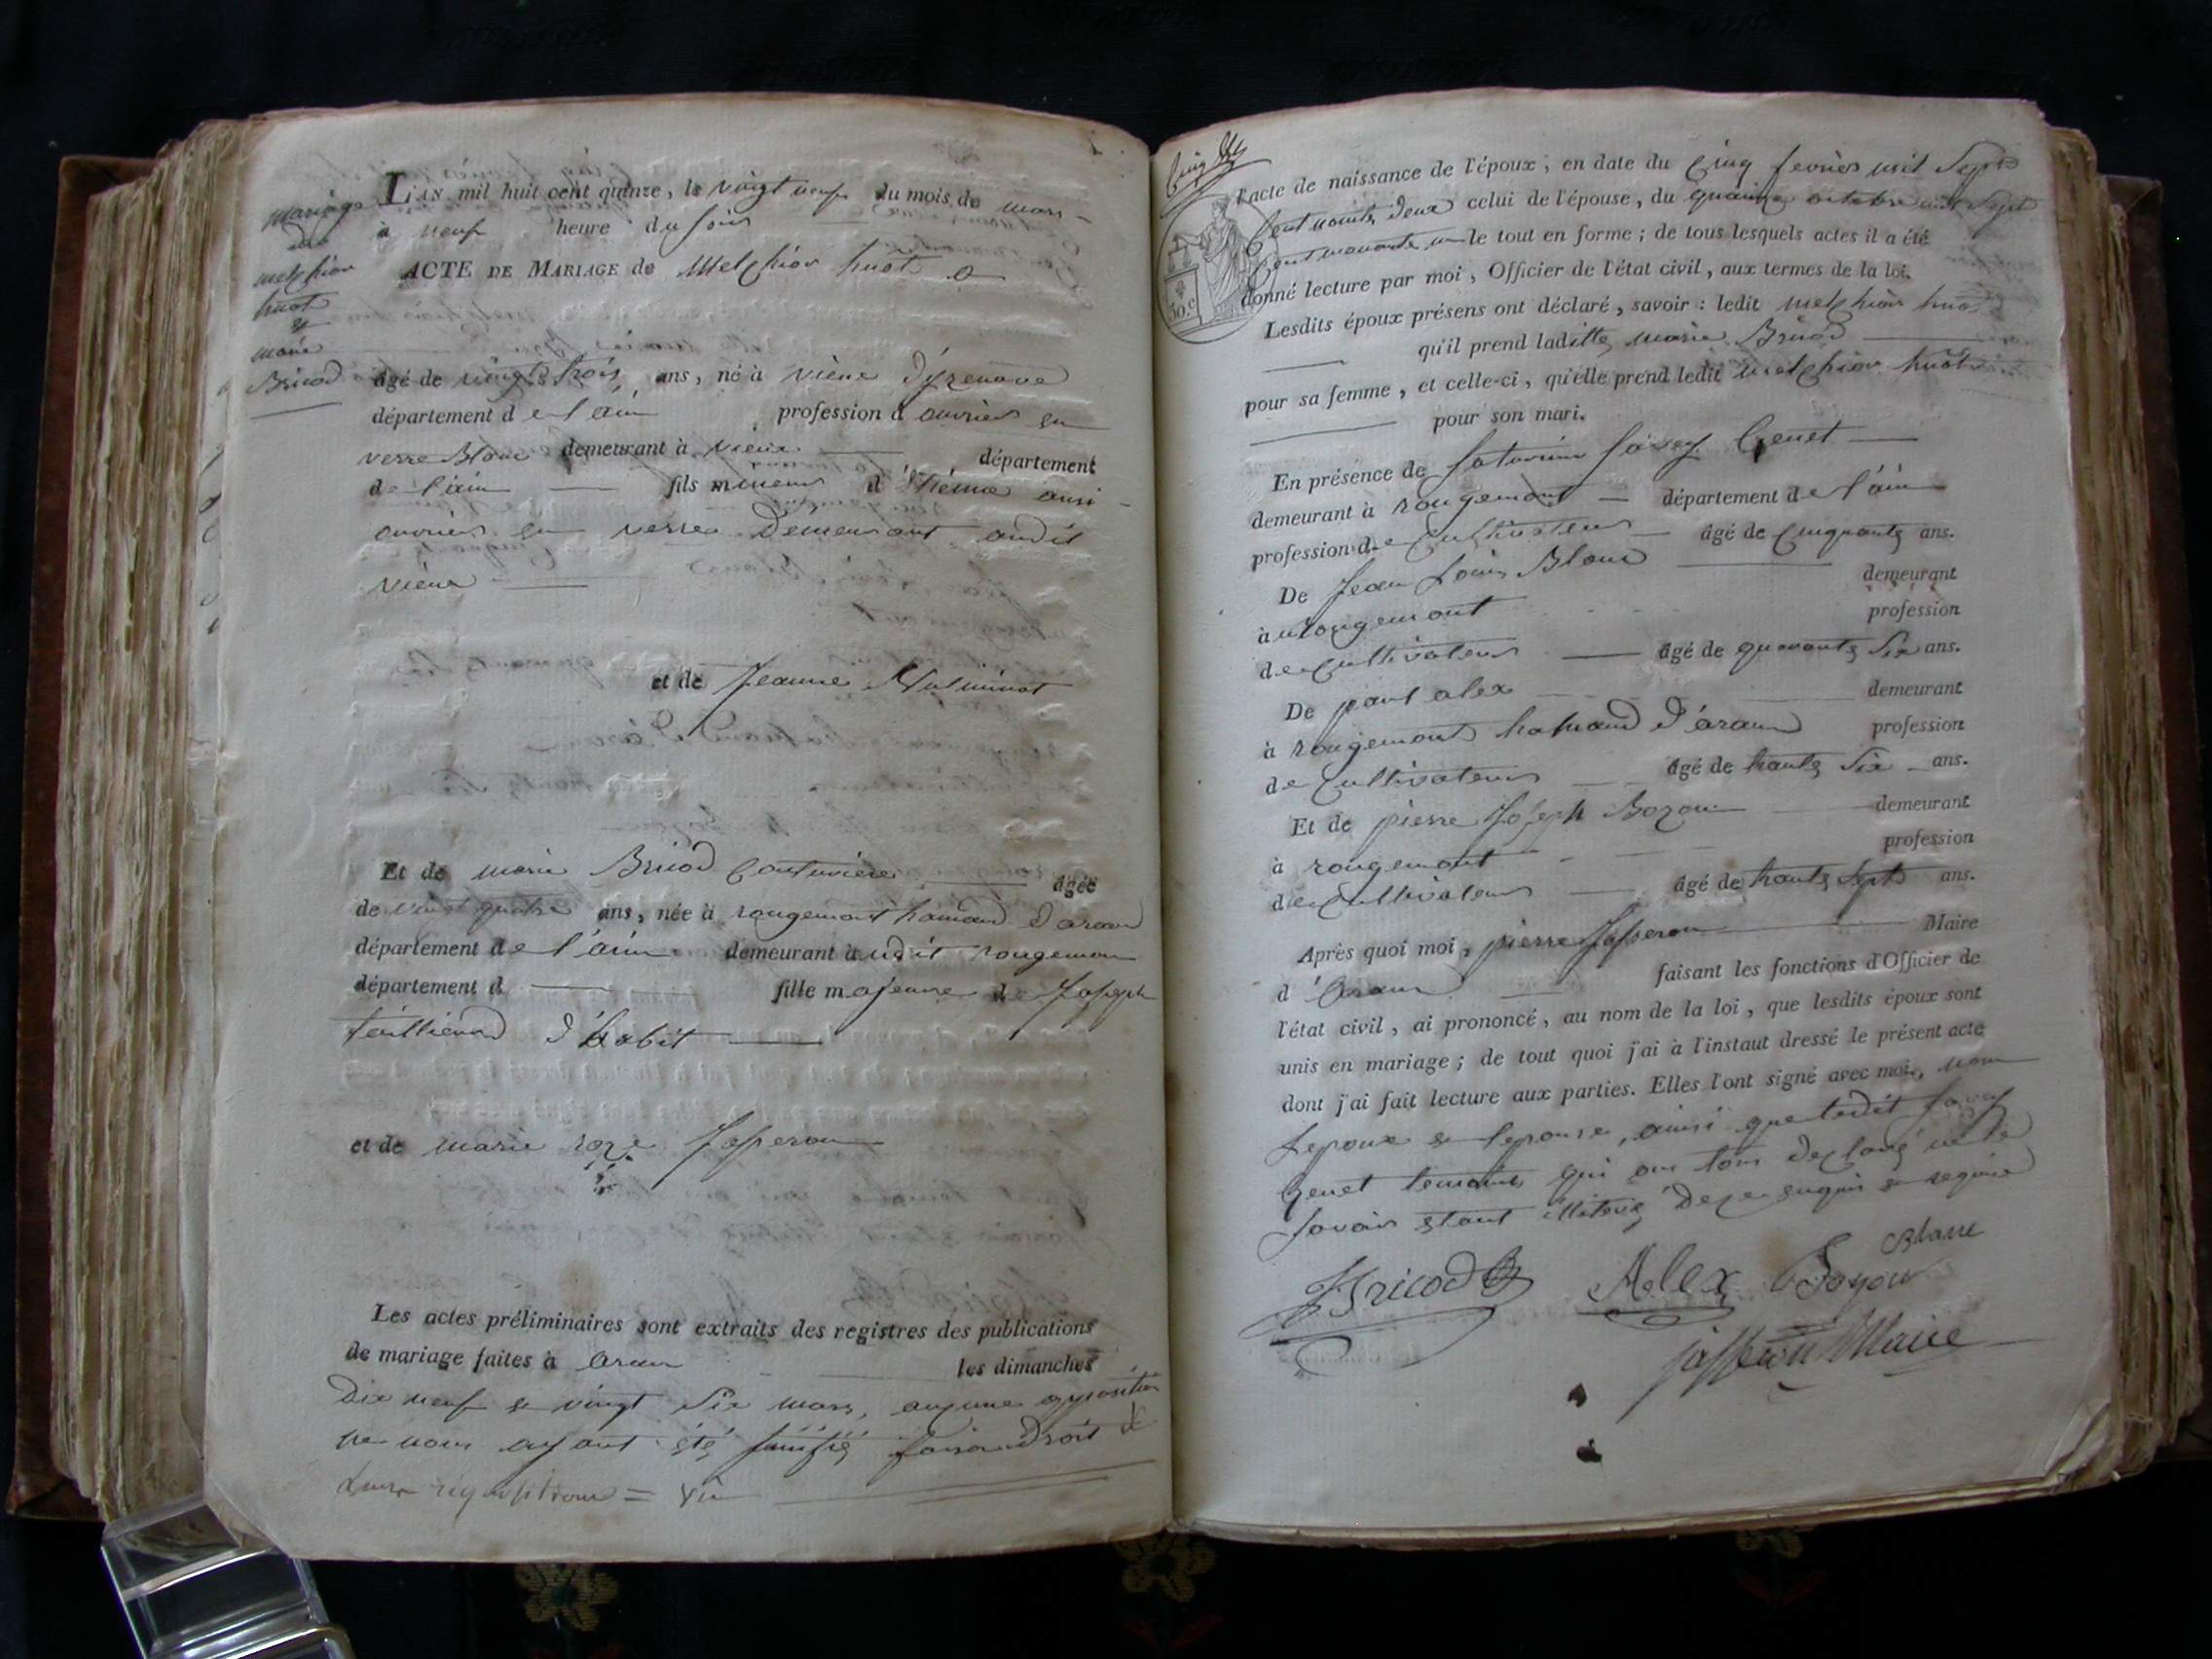 mariage
de
melchior
huot
et
marie
Bricod
L'AN mil huit cent quinze, le vingt neuf du mois de mars
à neuf heure du soir
ACTE DE MARIAGE de Melchior huot
âgé de vingt trois ans, né à viene d'jzenave
département de l'ain profession d ouvrier en
verre Blanc demeurant à viene département
de l'ain fils mineur d'
ouvrier en verre demeurant audit
viene
et de Jeanne
Et de marie Bricod Couturière âgée
de vingt quatre ans, née à rougemont hamaud d'aran
département de l'ain demeurant audit rougemon
département d fille majeure de Joseph
tailliend d'habit
et de marie roze Jasseron
Les actes préliminaires sont extraits des registres des publications
de mariage faites à aran les dimanches
Dix neuf et vingt Six mars, aucune opposition
ne nous ayant été faisan droit à
leur requisitions =
l'acte de naissance de l'époux, en date du Cinq fevrier mil Sept
Cent nonte deux celui de l'épouse, du quainze octobre mil Sept
Cent nonante un le tout en forme; de tous lesquels actes il a été
donné lecture par moi, Officier de l'état civil, aux termes de la loi.
30.c
Lesdits époux présens ont déclaré, savoir: ledit melchior huot
qu'il prend laditte marie Bricod
pour sa femme, et celle-ci, qu'elle prend ledit melchior huot
pour son mari.
En présence de Saturnin Savey Genet
demeurant à rougemont département de l'ain
profession de Cultivateur âgé de Cinquante ans.
De Jean Louis Blanc demeurant
à rougemont profession
de Cultivateur âgé de quarante Six ans.
De paul alex demeurant
à rougemont hamaud d'aran profession
de Cultivateur âgé de trante Six ans.
Et de pierre Joseph Bozon demeurant
à rougemont profession
de Cultivateur âgé de trante Sept ans.
Après quoi moi, pierre Jasseron Maire
d'aran faisant les fonctions d'Officier de
l'état civil, ai prononcé, au nom de la loi, que lesdits époux sont
unis en mariage; de tout quoi j'ai à l'instaut dressé le présent acte
dont j'ai fait lecture aux parties. Elles l'ont signé avec moi, non
Lepoux et lepouse, ainsi que ledit Savey
Genet temoins qui on tous declaré ne le
Savoir etant illiteré de ce enquis et requis
JBricod Alex Bozon Blanc
jasseron Maire